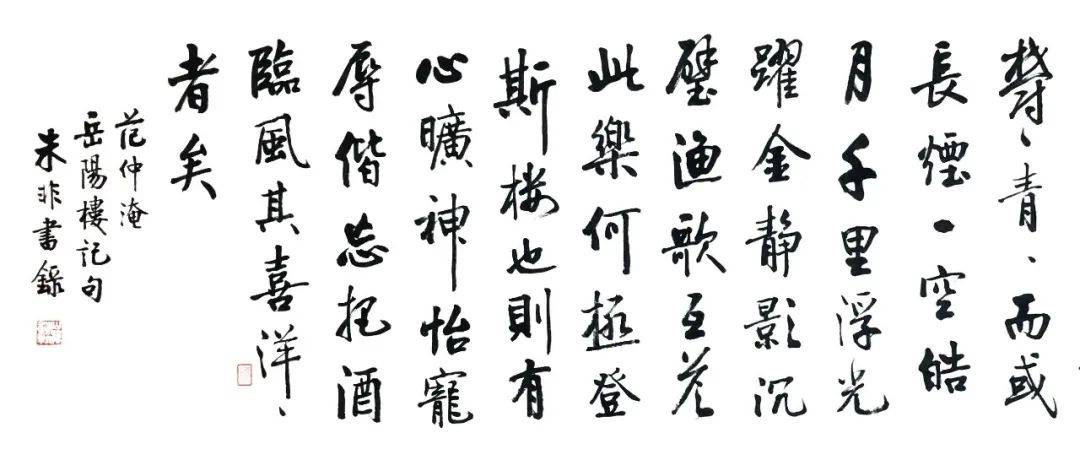 鬱々青々而或
長煙一空皓
月千里浮光
躍金静影沉
璧漁歌互答
此樂何極登
斯楼也則有
心曠神怡寵
辱偕忘把酒
臨風其喜洋々
者矣
范仲淹
岳陽樓記句
朱非書録